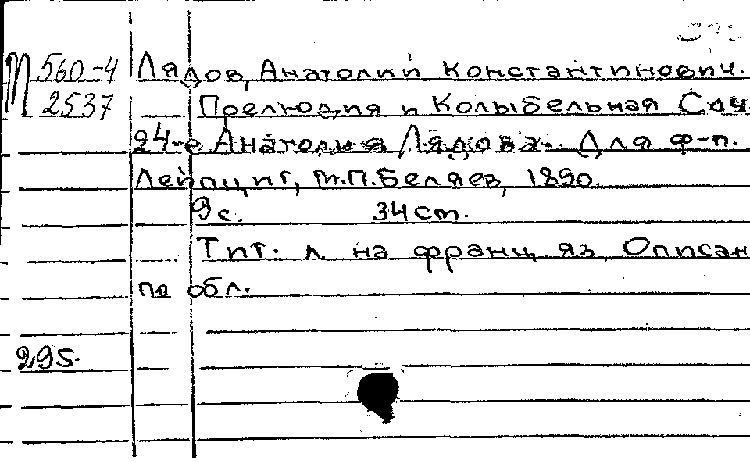 М 560-4 Лядов, Анатолий Константинович.
2537 Прелюдия и Колыбельная Соч.
24-е Анатолия Лядова. Для ф-п.
Лейпциг, М.П.Беляев, 1890.
9 с. 34 cm.
Тит. л. на франц. яз. Описан
по обл.
295.